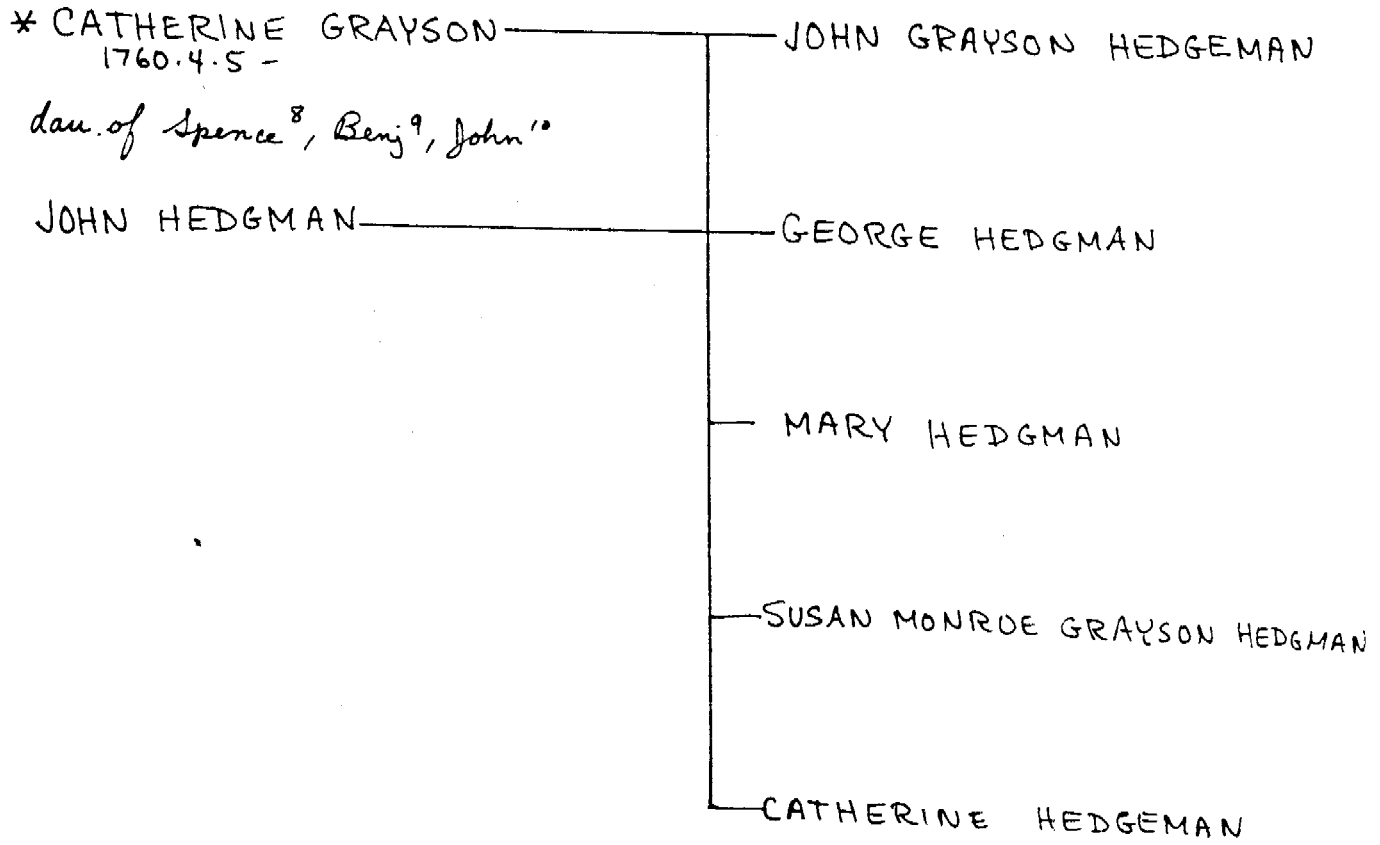 * CATHERINE GRAYSON
1760.4.5 -
dau. of Spence⁸, Benj⁹, John¹⁰
JOHN HEDGMAN
JOHN GRAYSON HEDGEMAN
GEORGE HEDGMAN
MARY HEDGMAN
SUSAN MONROE GRAYSON HEDGMAN
CATHERINE HEDGEMAN